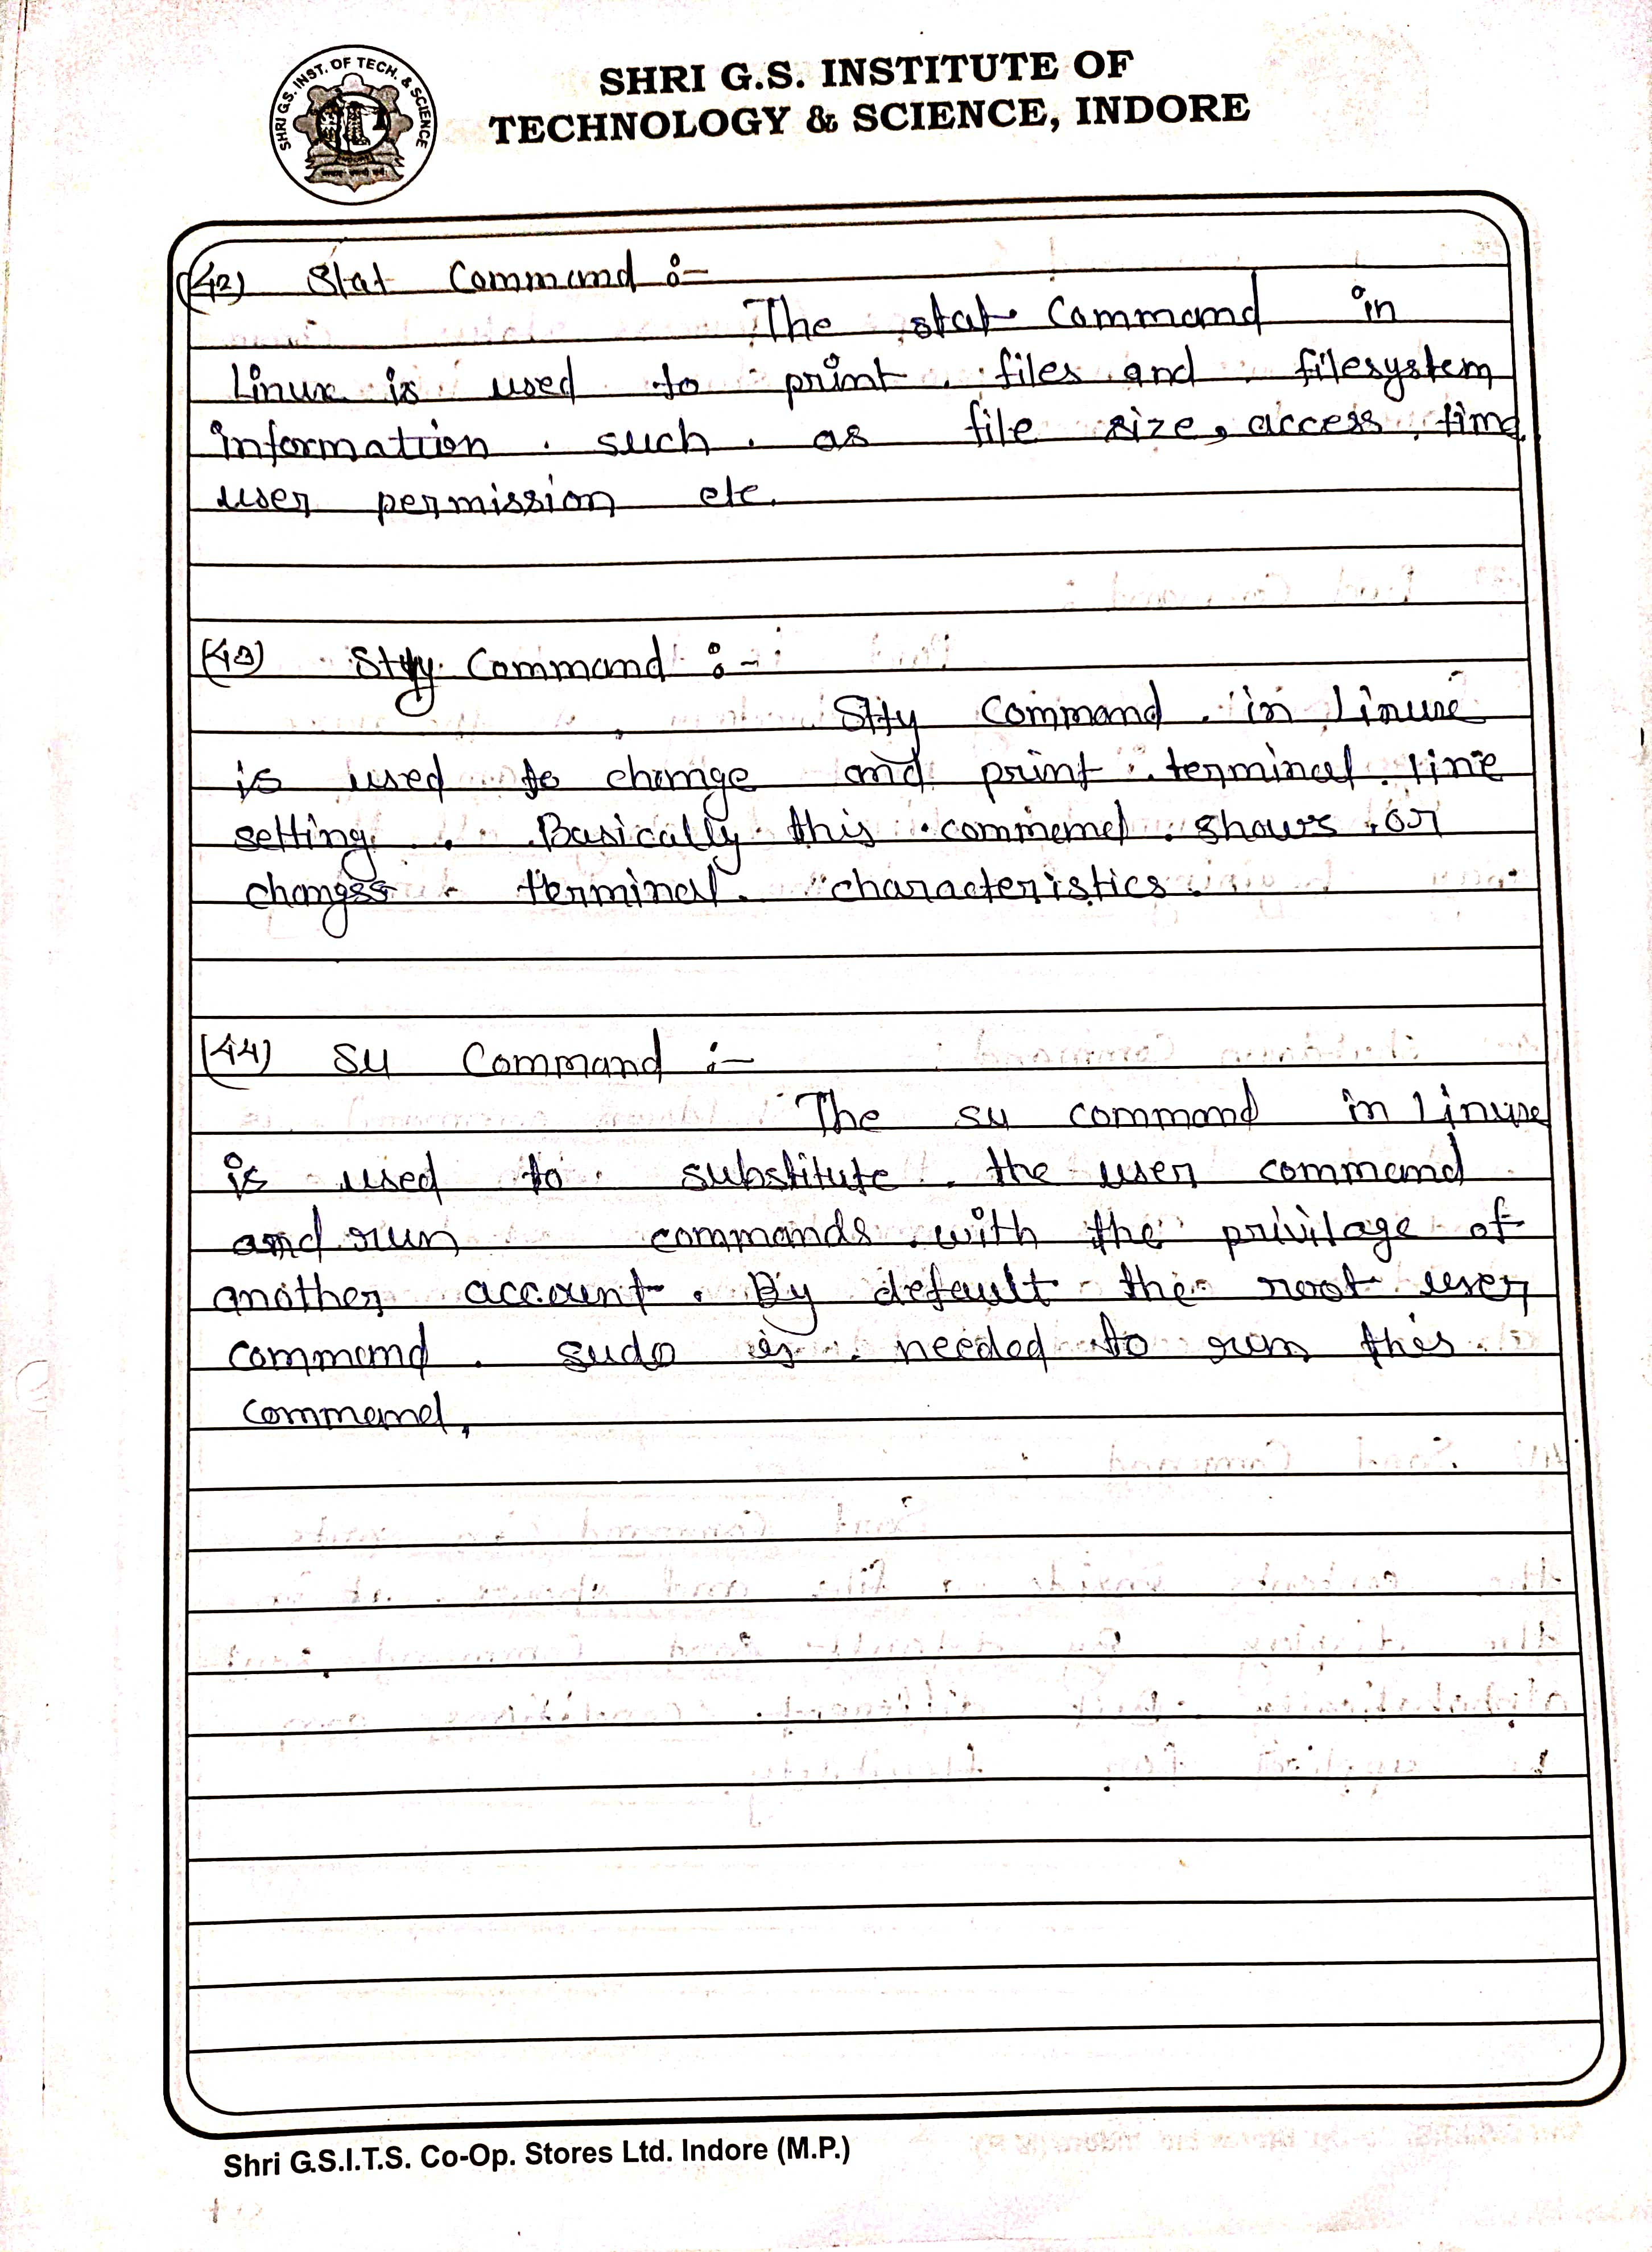 SHRI G.S. INST. OF TECH. & SCIENCE
SHRI G.S. INSTITUTE OF
TECHNOLOGY & SCIENCE, INDORE
(42) Stat Command :-
The stat Command in
Linux is used to print files and filesystem
information such as file size, access time
user permission etc.
(43) Stty Command :-
Stty Command in Linux
is used to change and print terminal line
setting. Basically this command shows or
changes terminal characteristics.
(44) Su Command :-
The su command in Linux
is used to substitute the user command
and run commands with the privilage of
another account. By default the root user
command sudo is needed to run this
command.
Shri G.S.I.T.S. Co-Op. Stores Ltd. Indore (M.P.)